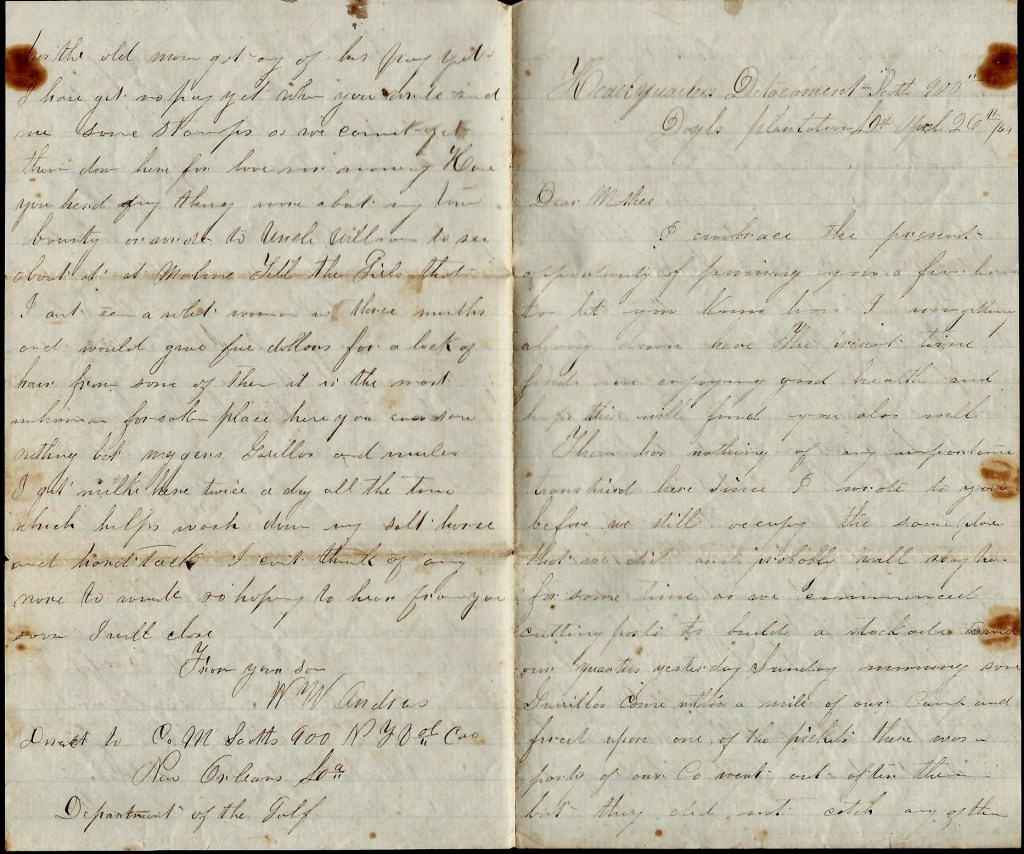 Headquarters Detachment "Scotts 900"
Doyls plantation La April 26th/64
Dear Mother
I embrace the present
opportunity of penning you a few lines
to let you know how I am getting
along down here The present time
finds me enjoying good health and
hope this will find you also well
There has nothing of any importance
transpired here since I wrote to you
before we still occupy the same place
that we did and probably will stay here
for some time as we commenced
cutting posts to build a stockade around
our quarters yesterday Sunday morning some
Gurillos come within a mile of our Camp and
fired upon one of the pickets there was a
party of our Co went out after them
but they did not catch any of them
has the old man got any of his pay yet
I have got no pay yet when you write send
me some stamps as we cannot get
them down here for love nor money Have
you herd any thing more about my town
bounty or wrote to Uncle William to see
about it at Malone Tell the Girls that
I ant seen a white woman in three months
and would give five dollars for a lock of
hair from some of them it is the most
inhuman forsaken place here you ever saw
nothing but niggers Gorillos and mules
I get milk here twice a day all the time
which helps wash down my salt horse
and hard tack I cant think of any
more to write so hoping to hear from you
soon I will close
From your son
W W Andras
Direct to Co M Scotts 900 N Y Vol Cav
New Orleans Loa
Department of the Gulf